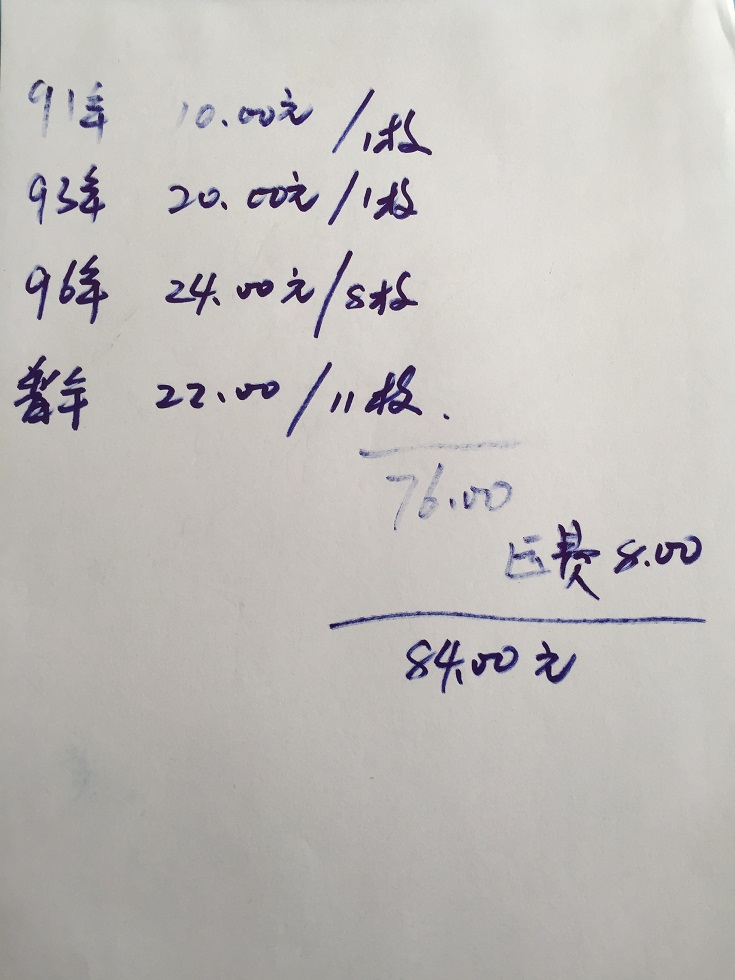 91年 10.00元/1枚
93年 20.00元/1枚
96年 24.00元/8枚
普年 22.00/11枚.
76.00
运费 8.00
84.00元